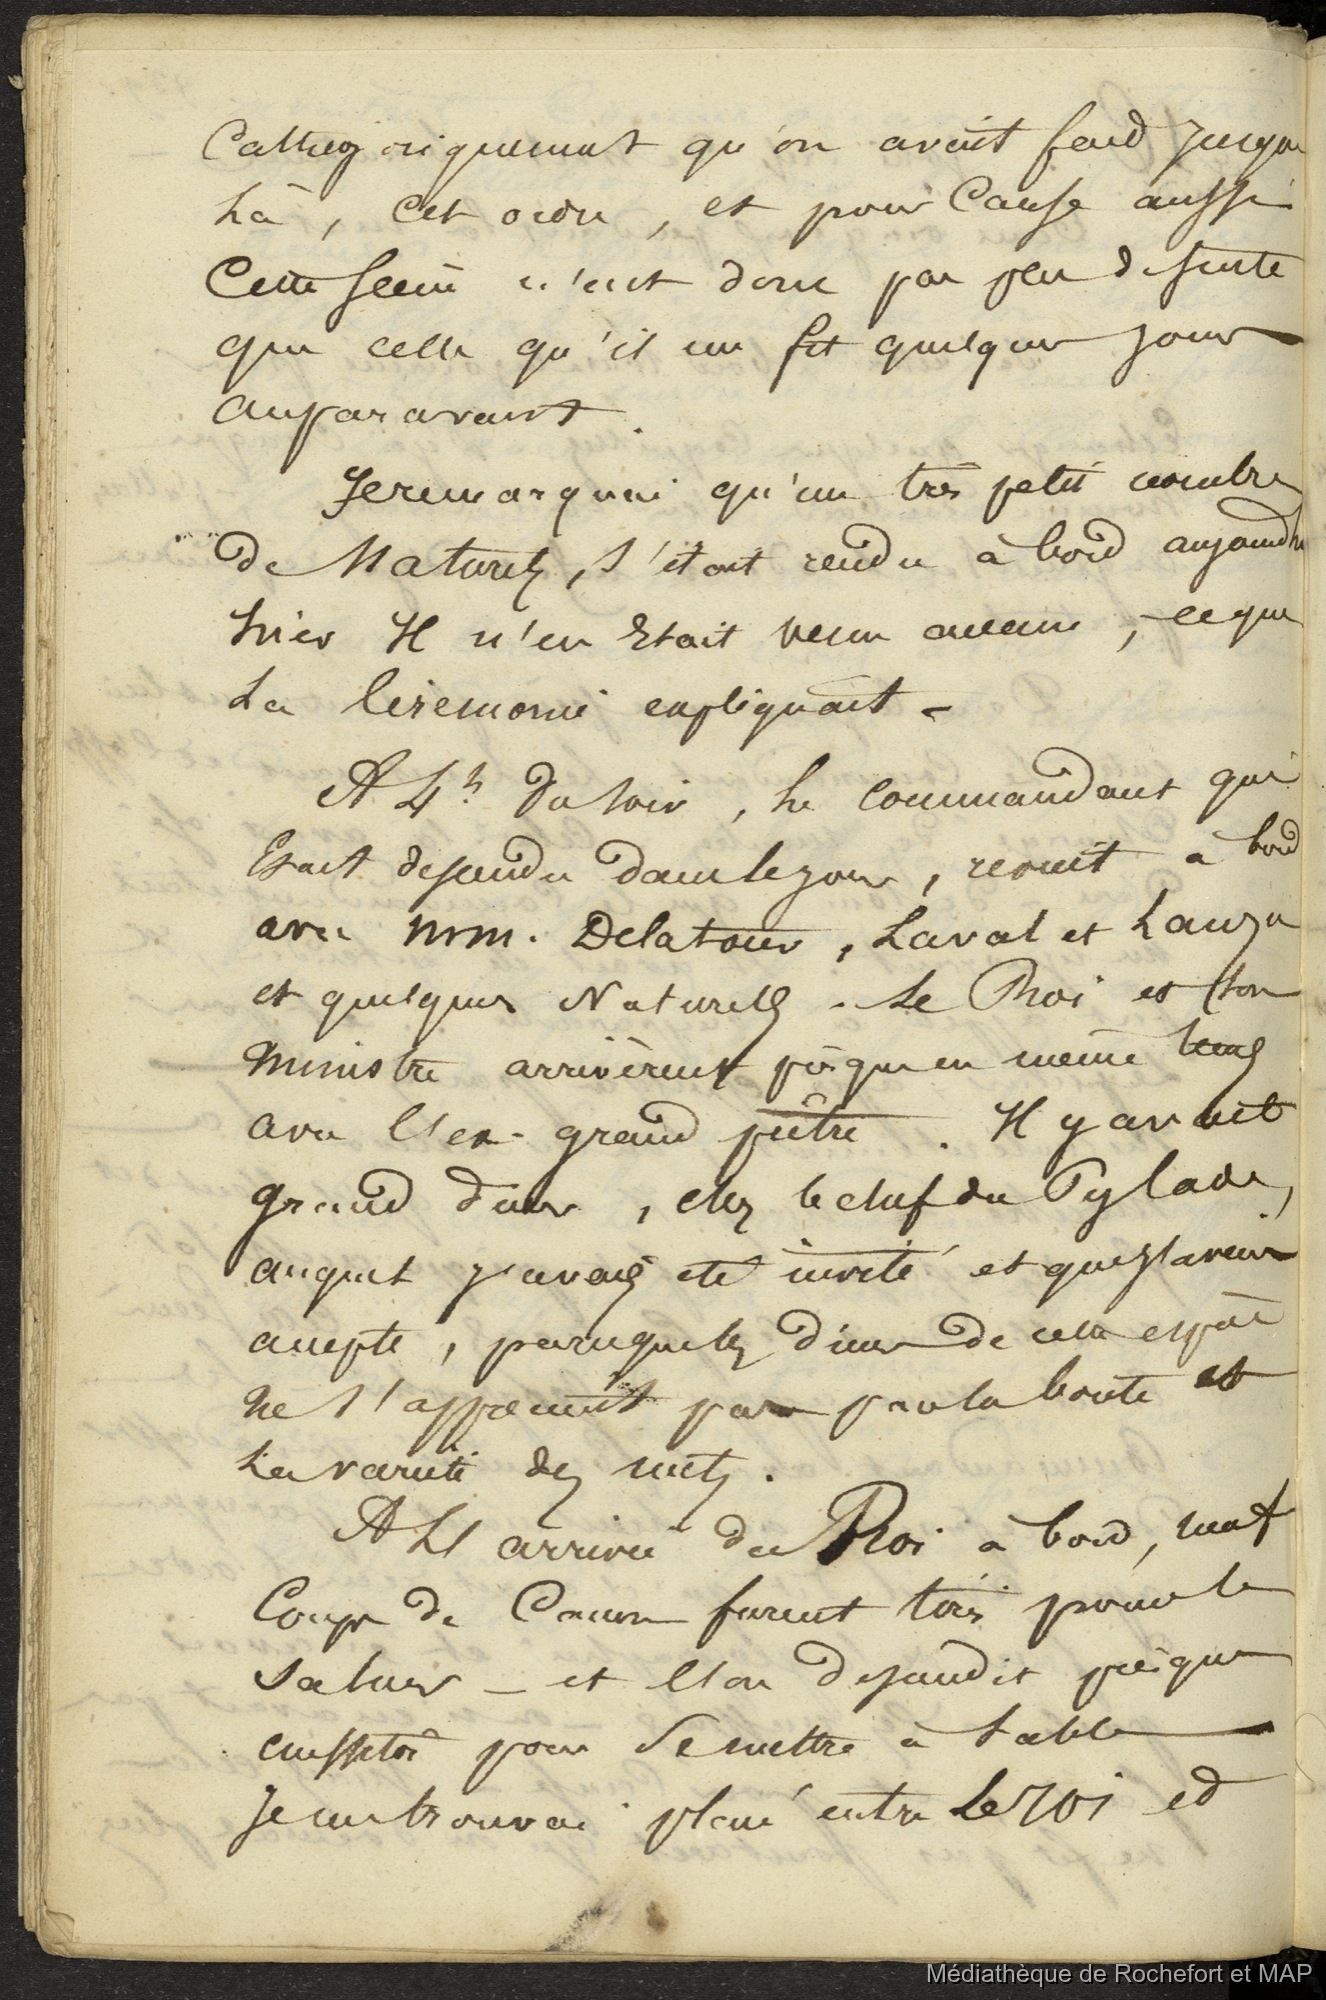 Cathegoriquement qu'on avait fait jusque
là, cet ordre, et pour Cause aussi
Cette scène n'eut donc pas plus de suite
que celle qu'il me fit quelques jours
auparavant.
Je remarquai qu'un très petit nombre
de Naturels, s'était rendu à bord aujourd'h
hier Il n'en Etait venu aucun, ce que
La Cérémonie expliquait -
A 4h du soir, le commandant qui
Etait descendu dans le jour, revint à bord
avec mm. Delatour, Laval et Lanza
et quelques Naturels - Le Roi et Son
Ministre arrivèrent presque en même temps
avec l'ex-grand prêtre. Il y avait
grand diner, chez le chef du Pylade,
auquel j'avais été invité et que j'avais
accepté, parceque les diners de cette espèce
ne s'apprécient pas par la bonté et
La variété des mets.
A L'arrivée du Roi à bord, neuf
Coups de Canon furent tirés pour le
saluer - et l'on descendit presque
aussitôt pour Se mettre à table
Je me trouvai placé entre Le roi et
Médiathèque de Rochefort et MAP